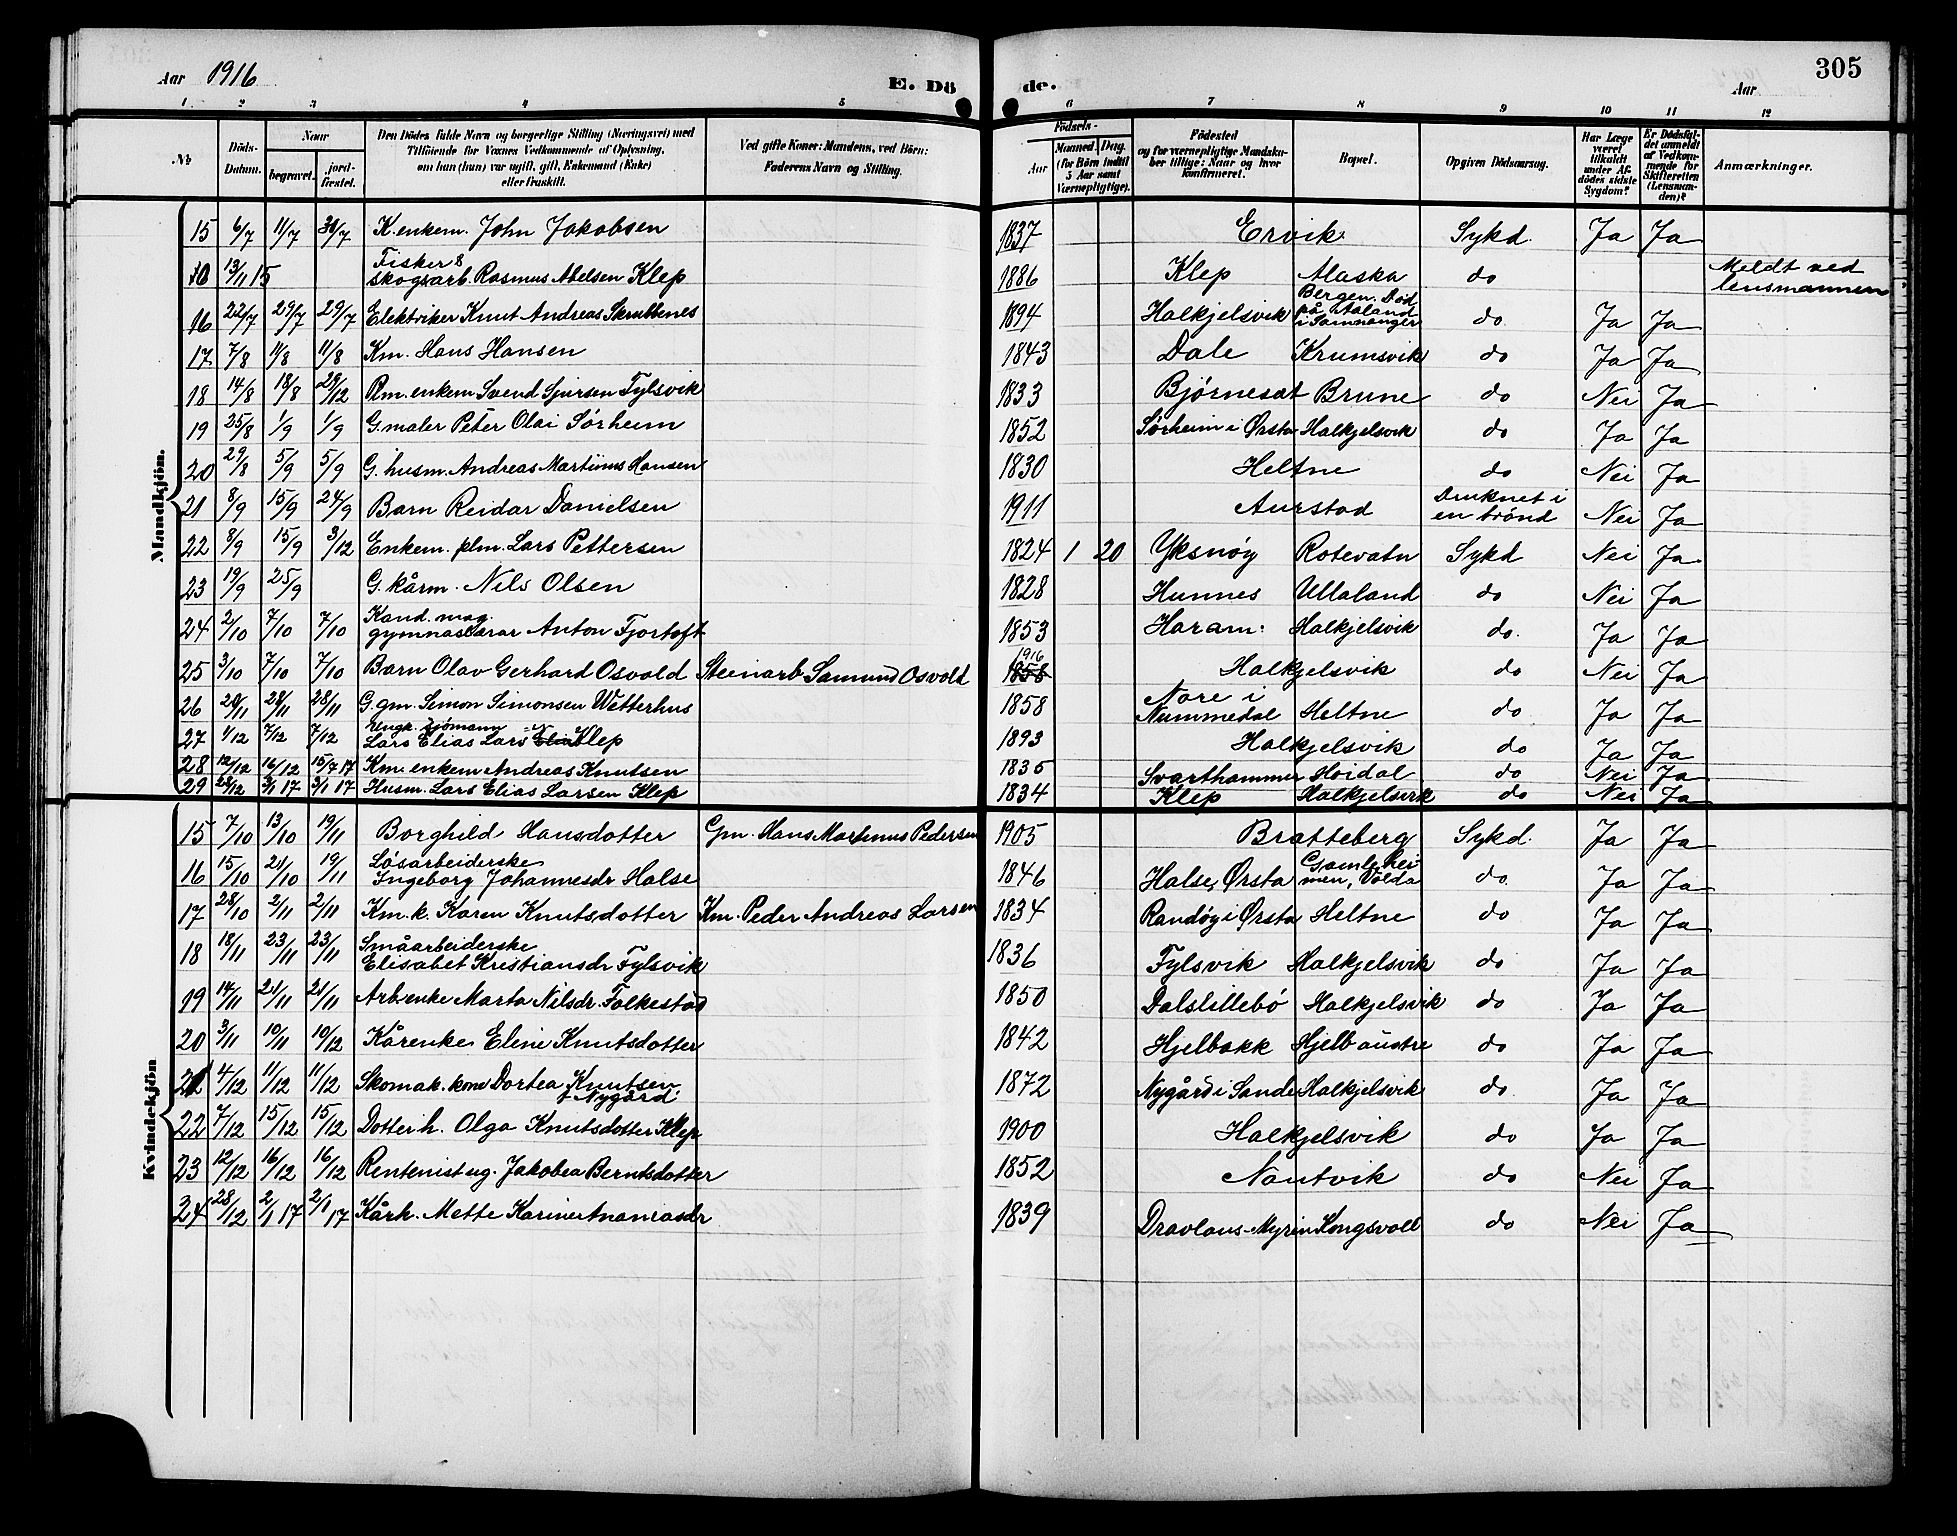 Aar 1916
E. Dö
de.
Aar
305
1. 2 3 4 5 6 7 8 9 10 11 12
No
Döds-Datum.
Naar
begravet.
jord-fæstet.
Den Dödes fulde Navn og borgerlige Stilling (Næringsvei) med
Tilföiende for Voxnes Vedkommende af Oplysning,
om han (hun) var ugift, gift, Enkemand (Enke)
eller fraskilt.
Ved gifte Koner: Mandens, ved Börn:
Faderens Navn og Stilling.
Födsels-
Aar
Maaned. Dag.
(for Börn indtil 5 Aar samt Værnepligtige).
Födested
og for værnepligtige Mandska-
ber tillige: Naar og hvor
konfirmeret.
Bopæl.
Opgiven Dödsaarsag.
Har Læge været tilkaldt under Afdödes sidste Sygdom?
Er Dödsfaldet anmeldt af Vedkommende for Skifteretten (Lensmanden)?
Anmærkninger.
Mandkjön.
15 6/7 11/7 30/7 K. enkem. John Jakobsen 1837 Ervik Sykd. Ja Ja
10 13/11 15 Fisker & skogsarb. Rasmus Abelsen Klep 1886 Klep Alaska do Meldt ved lensmannen
16 22/7 29/7 29/7 Elektriker Knut Andreas Skrubbenes 1894 Halkjelsvik Bergen. Död på Aaland i Samnanger do. Ja Ja
17. 7/8 11/8 11/8 Km. Hans Hansen 1843 Dale Krumsvik do Ja Ja
18 14/8 18/8 29/12 Km. enkem Svend Sjursen Fylsvik 1833 Bjørneset Brune do Nei Ja
19 25/8 1/9 1/9 G. maler Peter Olai Sörheim 1852 Sørheim i Ørsta Halkjelsvik do Ja Ja
20 29/8 5/9 5/9 G. husm. Andreas Martinus Hansen 1830 Heltne do Nei Ja
21 8/9 15/9 24/9 Barn Reidar Danielsen 1911 Aurstad Druknet i en brönd Nei Ja
22 8/9 15/9 3/12 Enkem. plm. Lars Pettersen 1824 1 20 Yksnøy Rotevatn Sykd Nei Ja
23 19/9 25/9 G. kårm. Nils Olsen 1828 Hunnes Ullaland do Nei Ja
24 2/10 7/10 7/10 Kand. mag. gymnaslærar Anton Fjørtoft 1853 Haram. Halkjelsvik do. Ja Ja
25 3/10 7/10 7/10 Barn Olav Gerhard Osvold Steinarb Samund Osvold 1916 1858 Halkjelsvik do Nei Ja
26 20/11 28/11 28/11 G. gm. Simon Simonsen Wetterhus 1858 Nore i Nummedal Heltne do Ja Ja
27 1/12 7/12 7/12 Ungk. sjömann Lars Elias Lars Klep 1893 Halkjelsvik do Ja Ja
28 12/12 16/12 15/4 17 Km. enkem Andreas Knutsen 1835 Svarthammer Hoidal do Nei Ja
29 28/12 3/1 17 3/1 17 Husm. Lars Elias Larsen Klep 1834 Klep Halkjelsvik do Nei Ja
Kvindekjön
15 7/10 13/10 19/11 Borghild Hansdotter Gm. Hans Martinus Pedersen 1905 Bratteberg Sykd. Ja Ja
16 15/10 21/10 19/11 Lösarbeiderske Ingeborg Johannesdr Halse 1846 Halse, Ørsta Gamleheimen, Volda do. Ja Ja
17 28/10 2/11 2/11 Km. k. Karen Knutsdotter Km. Peder Andreas Larsen 1834 Randøy i Ørsta Heltne do Ja Ja
18 18/11 23/11 23/11 Småarbeiderske Elisabet Kristiansdr Fylsvik 1836 Fylsvik Halkjelsvik do Ja Ja
19 14/11 21/11 21/11 Arb.enke Marta Nilsdr. Folkestad 1850 Dalslillebö Halkjelsvik do Ja Ja
20 3/11 10/11 10/12 Kårenke Eline Knutsdotter 1842 Hjelbakk Hjelb austre do Ja Ja
21 4/12 11/12 11/12 Skomak. kone Dortea Knutsen f. Nygård 1872 Nygård i Sande Halkjelsvik do Ja Ja
22 7/12 15/12 15/12 Dotter h. Olga Knutsdotter Klep 1900 Halkjelsvik do Ja Ja
23 12/12 16/12 16/12 Rentenist ug. Jakobea Berntsdotter 1852 Nautvik do Nei Ja
24 28/12 2/1 17 2/1 17 Kårk. Mette Karine 1839 Dravlaus-Myrin Kongsvoll do Nei Ja